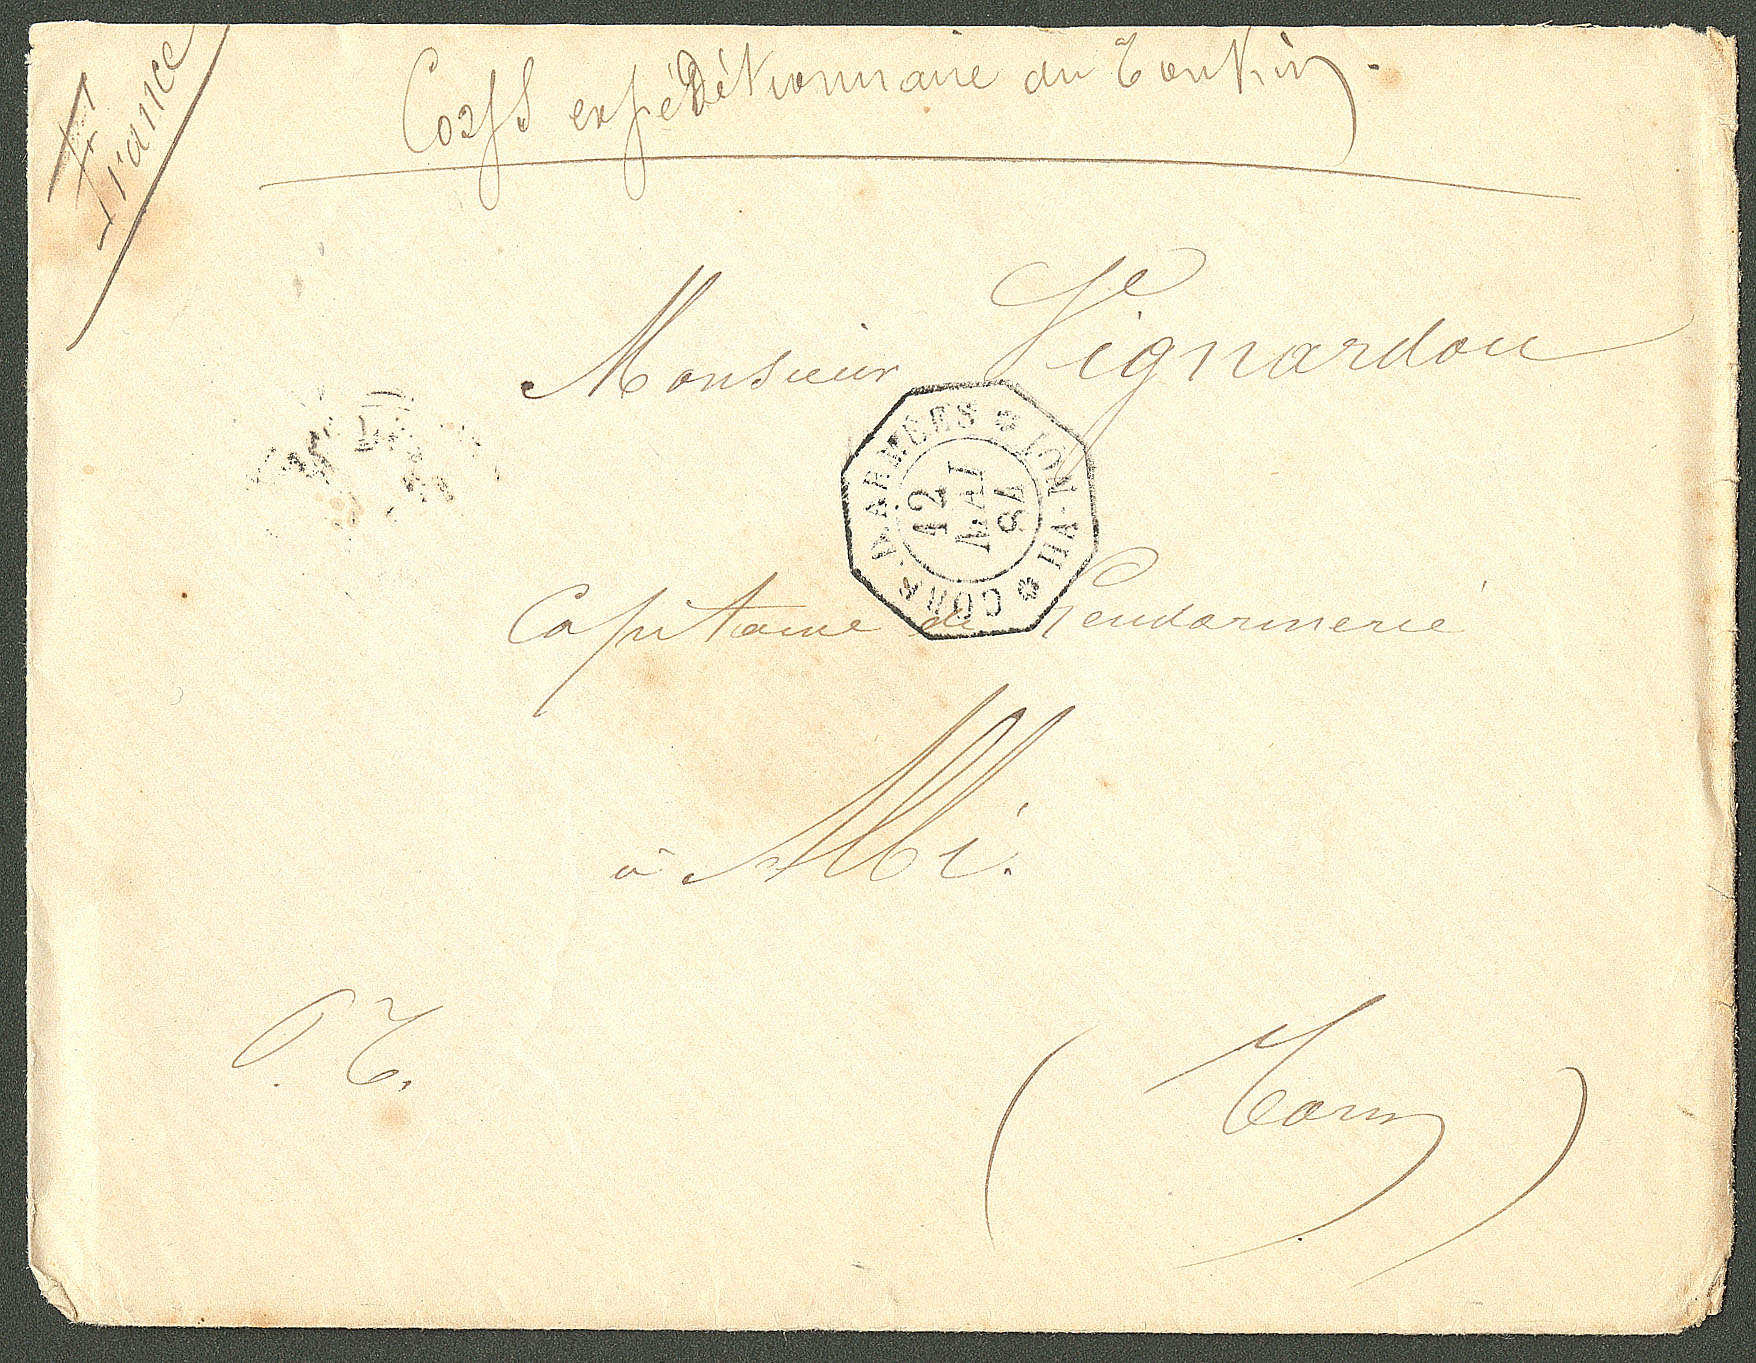 France
Corps expéditionnaire du Tonkin
Monsieur Vignardou
CORR. D. ARMÉES * HA-NOI *
12
MAI
84
Capitaine de Gendarmerie
à Albi.
P. T.
(Tarn)